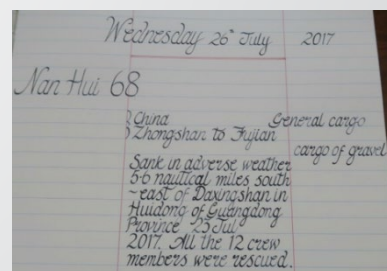 Wednesday 26th July 2017
Nan Hui 68
China General cargo
Zhongshan to Fujian cargo of gravel
Sank in adverse weather
5-6 nautical miles south
-east of Daxingshan in
Huidong of Guangdong
Province 25 Jul
2017. All the 12 crew
members were rescued.